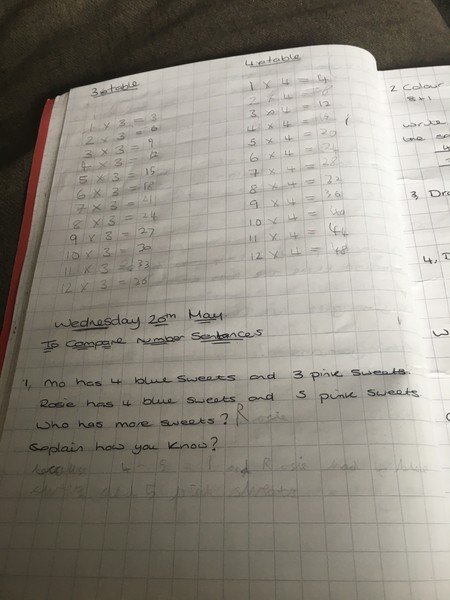 3xtable
1 x 3 = 3
2 x 3 = 6
3 x 3 = 9
4 x 3 = 12
5 x 3 = 15
6 x 3 = 18
7 x 3 =
8 x 3 = 24
9 x 3 = 27
10 x 3 = 30
11 x 3 = 33
12 x 3 = 36
4xtable
1 x 4 = 4
2 x 4 = 8
3 x 4 = 12
4 x 4 =
5 x 4 = 20
6 x 4 = 24
7 x 4 = 28
8 x 4 = 32
9 x 4 = 36
10 x 4 = 40
11 x 4 = 44
12 x 4 = 48
Wednesday 20th May
To Compare number Sentences
1, Mo has 4 blue sweets and 3 pink sweets.
Rosie has 4 blue sweets and 5 pink sweets.
Who has more sweets? Rosie
Explain how you know?
because 4 - 5 = 1 and Rosie had
5 pink sweets
2 Colour
8+1
write
4, I